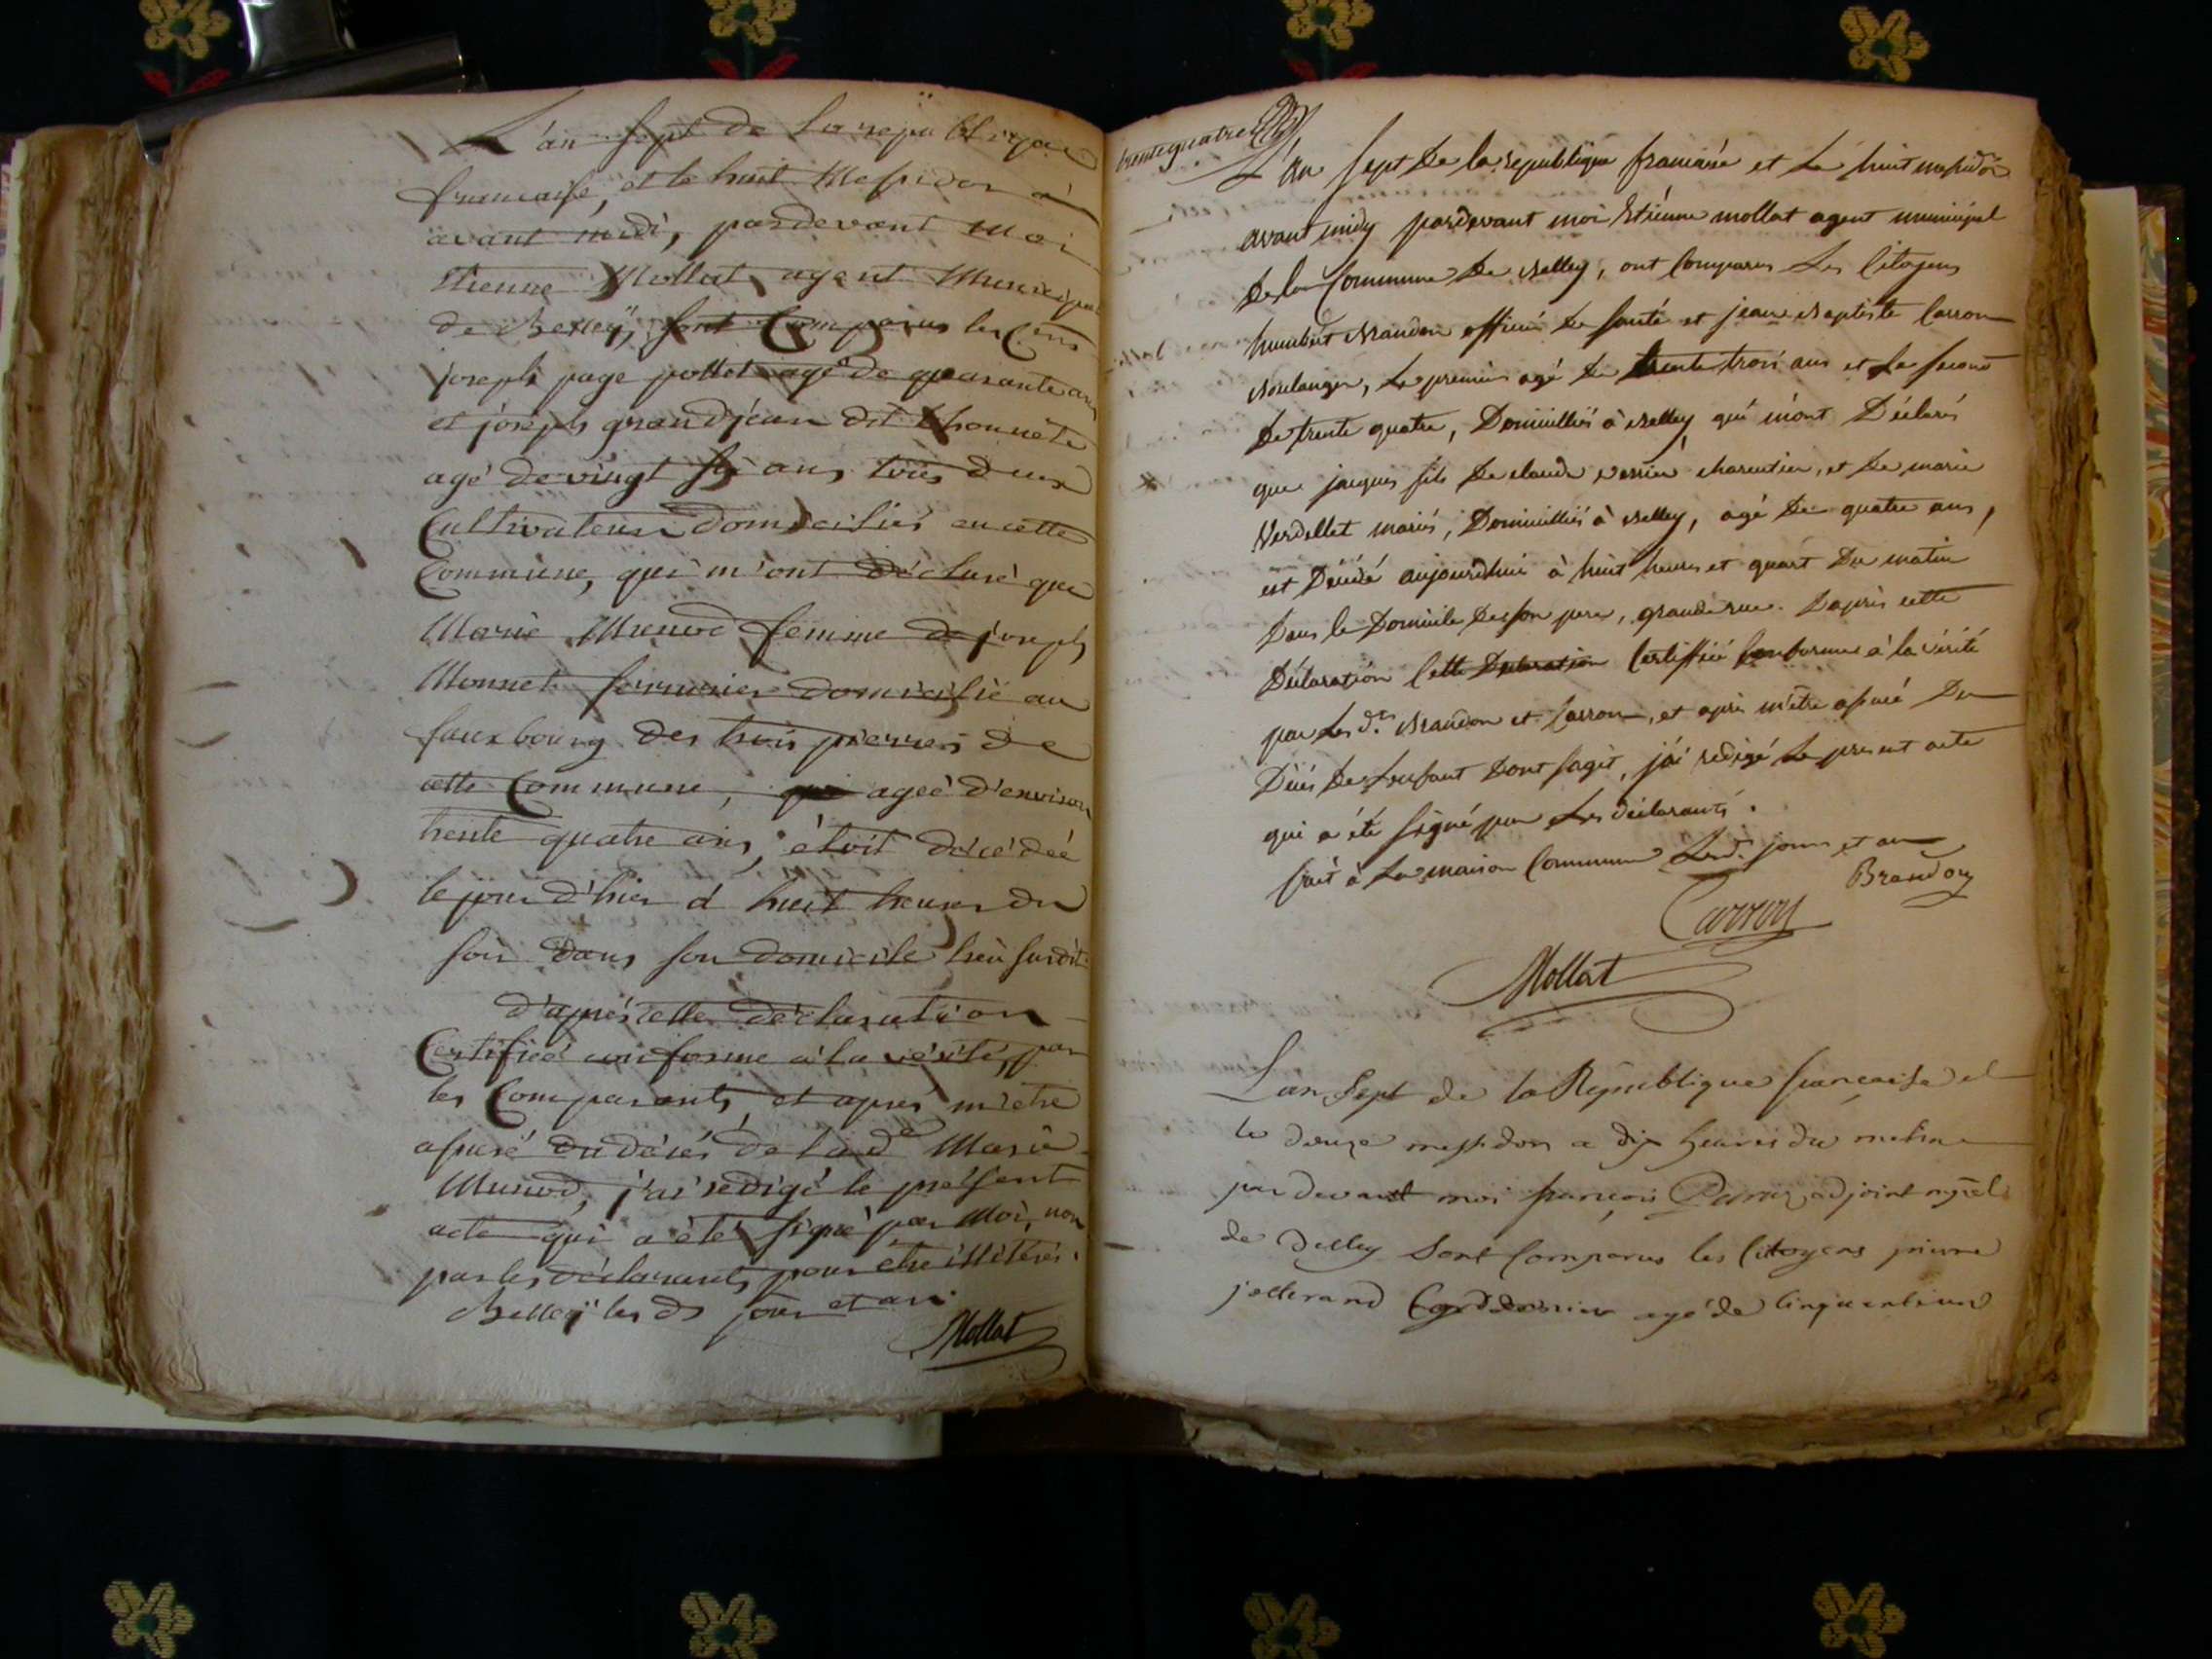 L'an sept de la republique
francaise, et le huit Messidor
avant midi, pardevant Moi
Etienne Mollat agent Municipal
de Belleÿ, sont Comparus les Cens
joseph page pollet agé de quarante ans
et joseph grandjean dit l'honnête
agé de vingt six ans, tous deux
Cultivateurs domiciliés en cette
Commune, qui m'ont déclaré que
Marie Munod femme de joseph
Monnet serrurier domicilié au
fauxbourg des trois pierres de
cette Commune, agée d'environ
trente quatre ans, étoit décédée
le jour d'hier à huit heures du
soir dans son domicile lieu susdit.
d'après cette déclaration
Certifiée conforme à la vérité, par
les Comparants, et après m'être
assuré du décés de lad. Marie
Munod, j'ai rédigé le présent
acte qui a été signé par Moi, non
par les déclarants pour être illitérés.
Belleÿ les ds jour et an.
Mollat
trente quatre
L'an sept de la republique francaise et le huit messidor
avant midy pardevant moi Etienne mollat agent municipal
de la Commune de Belley, ont Comparus Les Citoyens
humbert Brandon officier de santé et jean Baptiste Carron
Boulanger, Le premier agé de trente trois ans et Le second
de trente quatre, Domicilliés à Belley, qui m'ont Déclarés
que jacques fils de claude verrier charentier, et de marie
Verdellet mariés, Domicilliés à Belley, agé de quatre ans,
est Décédé aujourdhui à huit heures et quart Du matin
Dans le Domicile de son pere, grande rue. Dapres cette
Déclaration Cette Declaration Certiffiée Conforme à la vérité
par Les ds. Brandon et Carron, et après m'être assuré Du
Décès de L'enfant Dont sagit, j'ai redigé Le present acte
qui a été signé par Les déclarants.
fait à La maison Commune Lesd. jour et an
Brandon
Carron
Mollat
L'an Sept de la République francaise et
le douze messidor a dix heures du matin
par devant moi françois adjoint mpal
de Belley Sont Comparus les Citoyens pierre
jallerand Cordonnier agé de Cinquante un